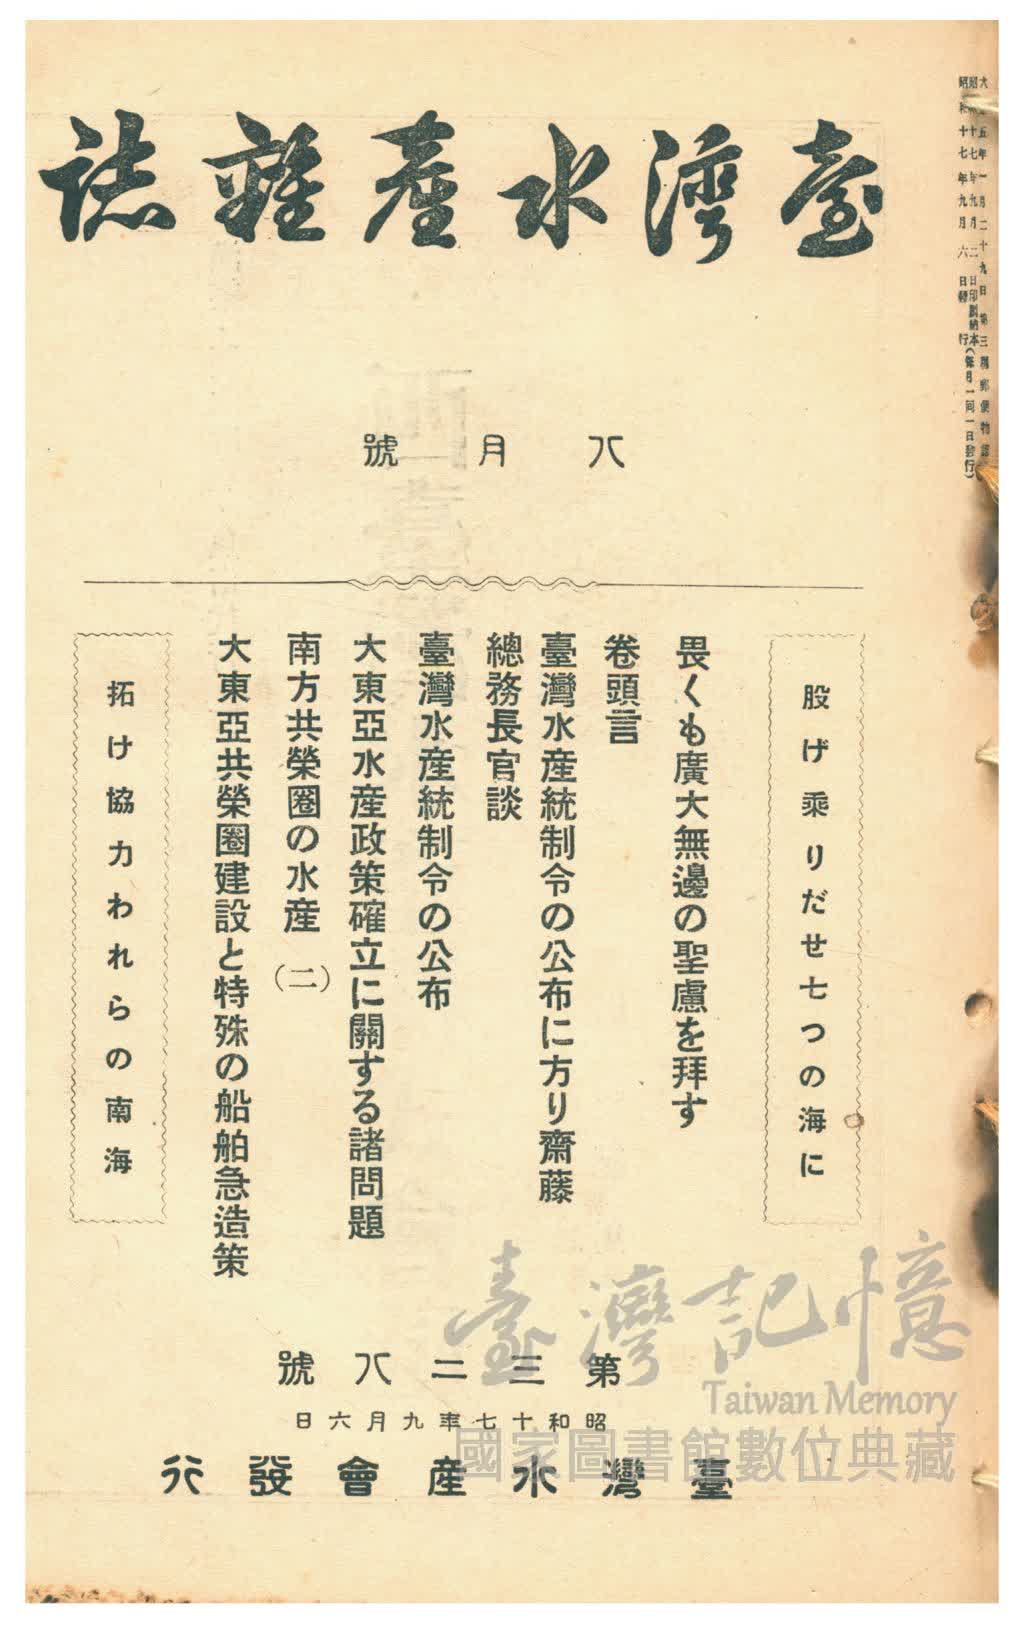 大正五年一月二十九日第三種郵便物認可
昭和十七年九月二日印刷納本(每月一回一日發行)
昭和十七年九月六日發行
臺灣水產雜誌
八月號
股げ乘りだせ七つの海に
畏くも廣大無邊の聖慮を拜す
卷頭言
臺灣水產統制令の公布に方り齋藤
總務長官談
臺灣水產統制令の公布
大東亞水產政策確立に關する諸問題
南方共榮圈の水產(二)
大東亞共榮圈建設と特殊の船舶急造策
拓け協力われらの南海
第三二八號
昭和十七年九月六日
臺灣水產會發行
臺灣記憶
Taiwan Memory
國家圖書館數位典藏